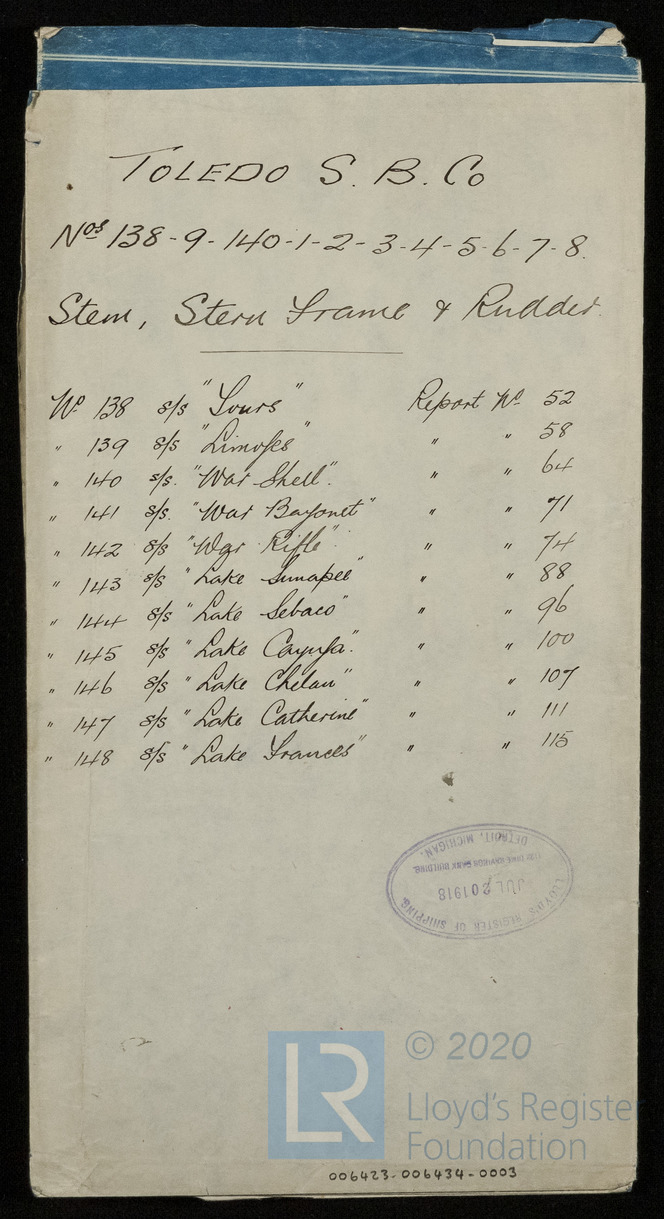 TOLEDO S. B. Co
Nos 138-9-140-1-2-3-4-5-6-7-8.
Stem, Stern Frame & Rudder.
No 138 s/s "Tours" Report No. 52
" 139 s/s "Limoges" " " 58
" 140 s/s. "War Shell". " " 64
" 141 s/s. "War Bayonet" " " 71
" 142 s/s "War Rifle". " " 74
" 143 s/s "Lake Sunapee" " " 88
" 144 s/s "Lake Sebaco" " " 96
" 145 s/s "Lake Cayuga". " " 100
" 146 s/s "Lake Chelan" " " 107
" 147 s/s "Lake Catherine" " " 111
" 148 s/s "Lake Frances" " " 115
LLOYD'S REGISTER OF SHIPPING.
JUL 20 1918
BANK BUILDING,
DETROIT, MICHIGAN.
LR
© 2020
Lloyd's Register
Foundation
006423-006434-0003